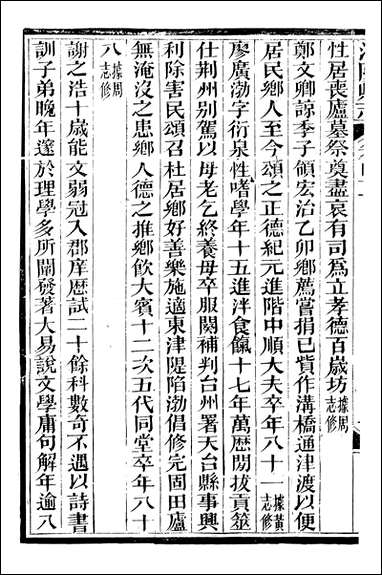 性居喪廬墓祭奠盡哀有司為立孝德百歲坊據周志修
鄭文卿諒季子領宏治乙卯鄉薦嘗捐已貲作溝橋通津渡以便
居民鄉人至今頌之正德紀元進階中順大夫卒年八十一據黃志修
廖廣渤字衍泉性嗜學年十五進泮食餼十七年萬歷間拔貢筮
仕荆州别駕以母老乞終養母卒服闋補判台州署天台縣事興
利除害民頌召杜居鄉好善樂施適東津隄陷渤倡修完固田廬
無淹沒之患鄉人德之推鄉飲大賓十二次五代同堂卒年八十
八據周志修
謝之浩十歲能文弱冠入郡庠歷試二十餘科數奇不遇以詩書
訓子弟晚年邃於理學多所闡發著大易說文學庸句解年逾八